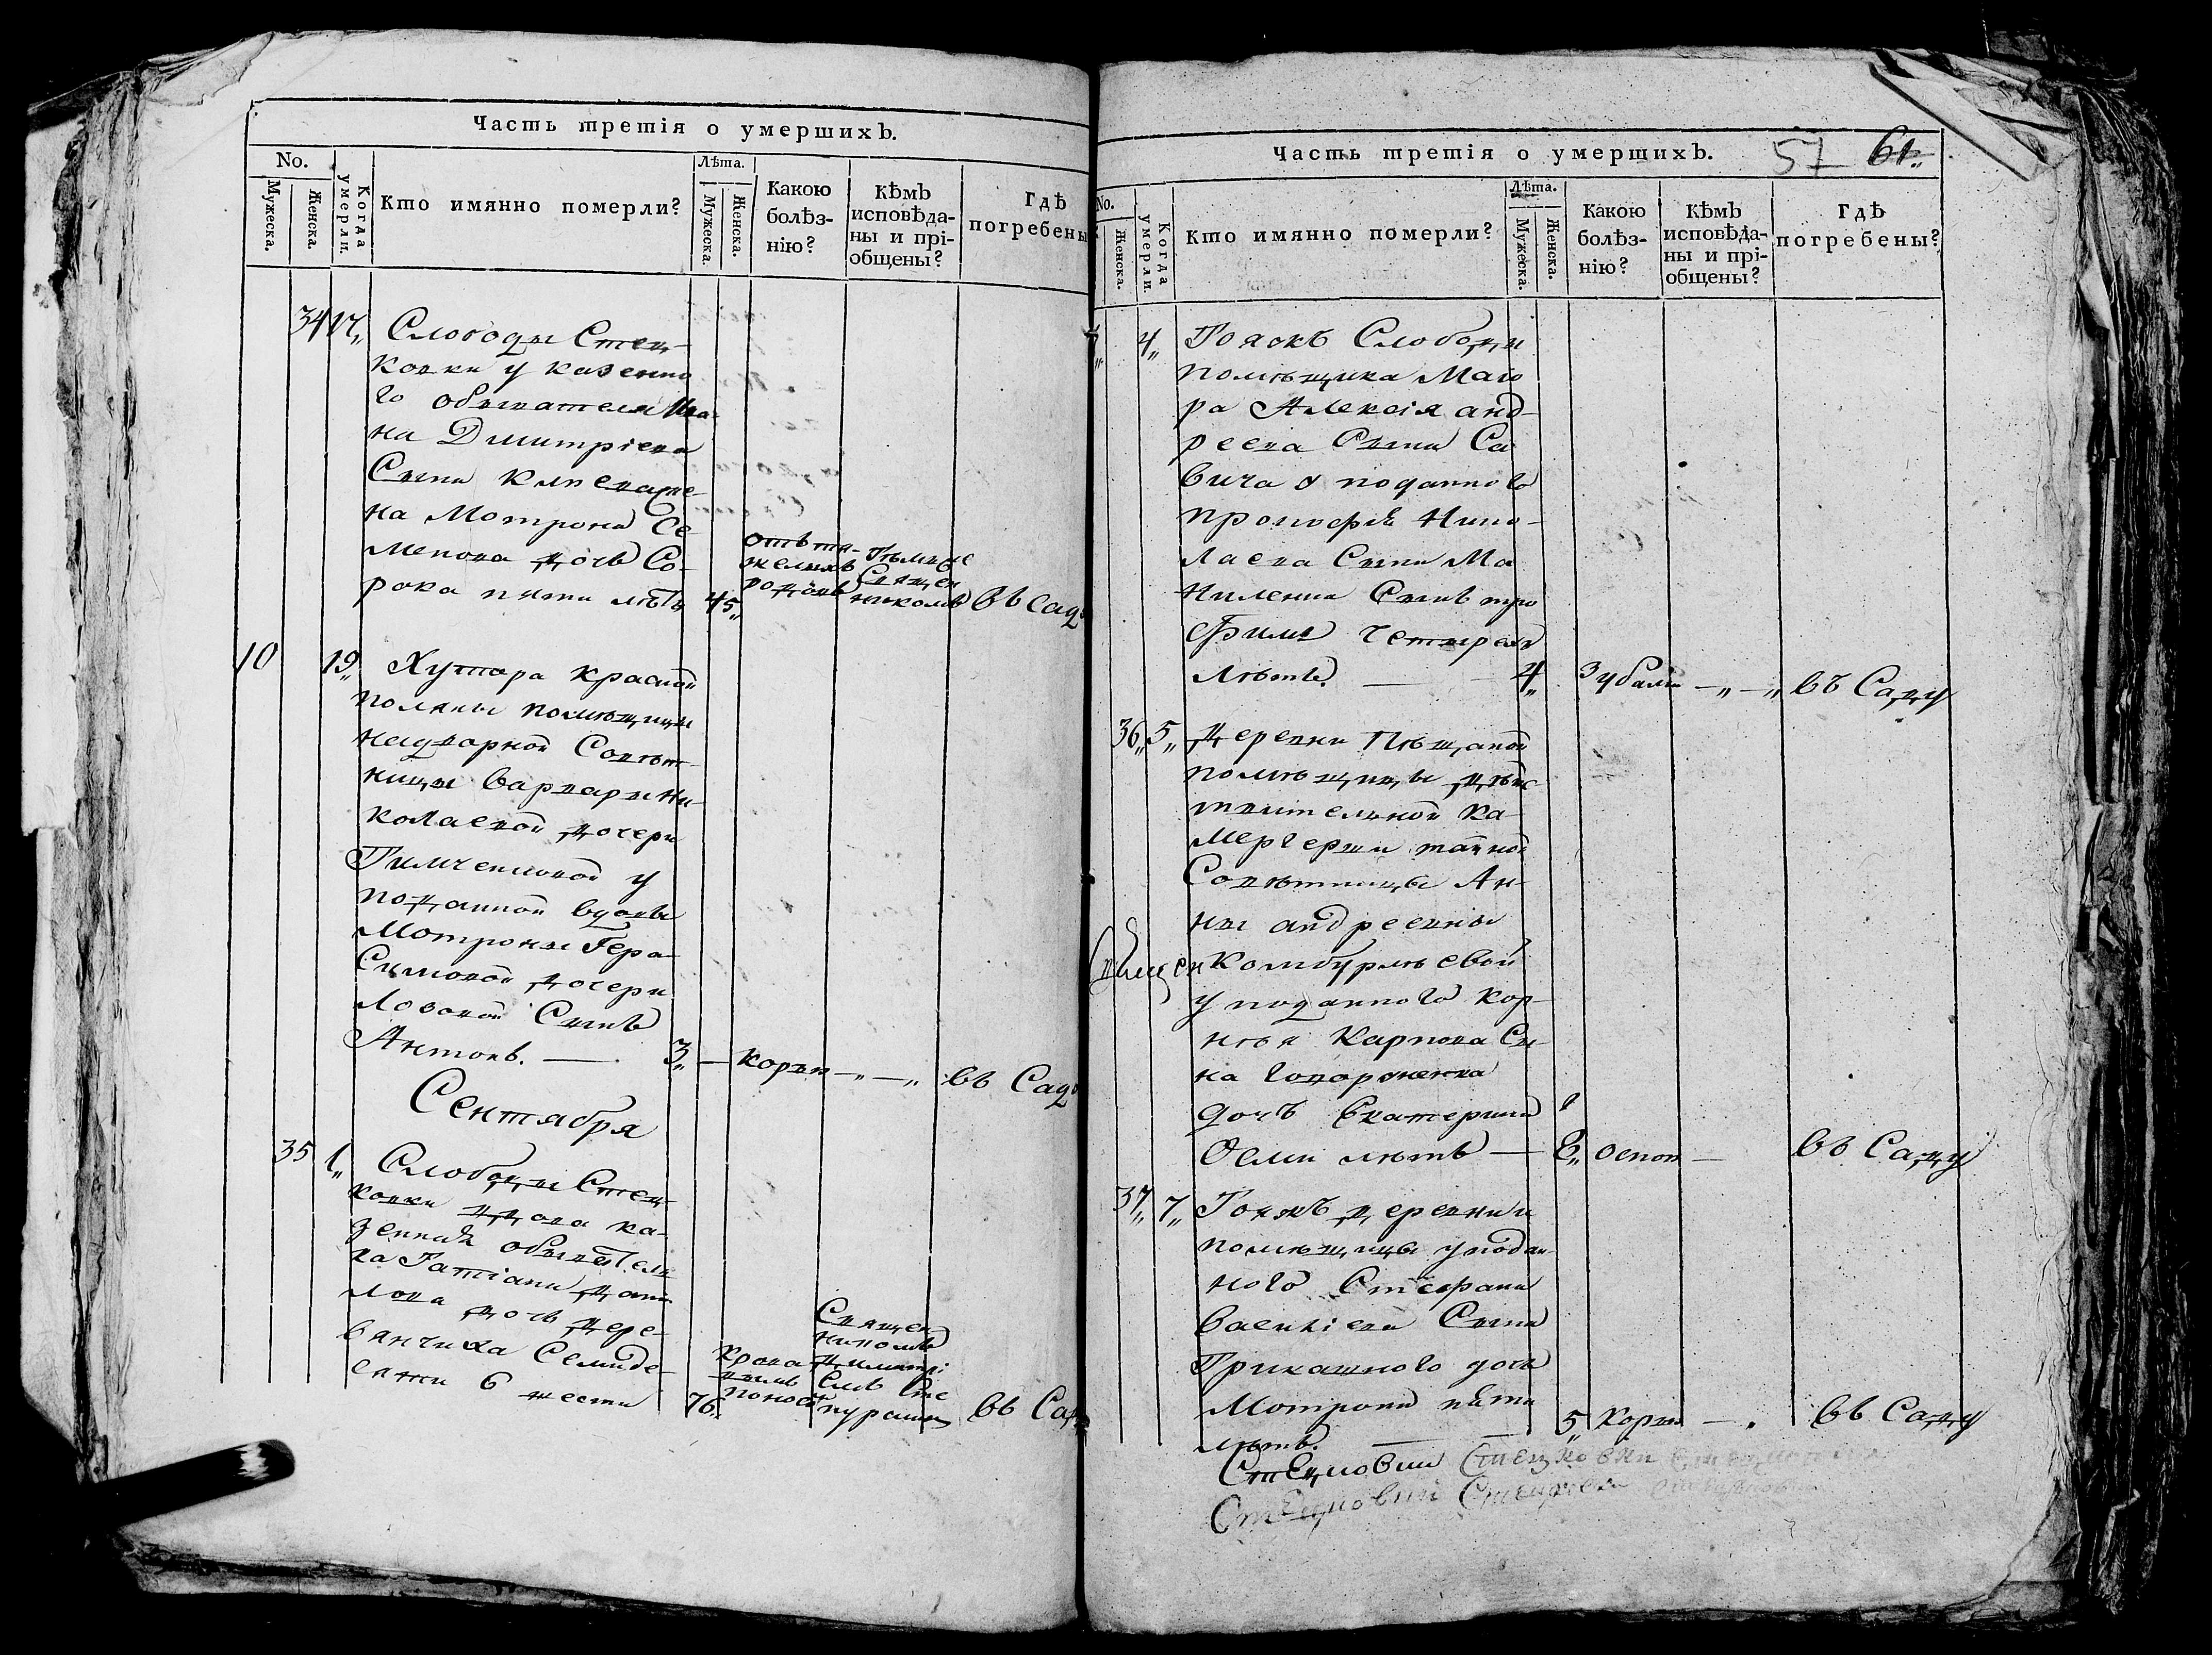 Часть третія о умершихъ.
No.
Мужеска.
Женска.
Когда умерли.
Кто имянно померли?
Лѣта.
Мужеска.
Женска.
Какою болѣз-
нію?
Кѣмъ
исповѣда-
ны и прі-
общены?
Гдѣ
погребены
34 17„ Слободы Стец-
ковки у казенно
го обывателя Ива
на Димитріева
Сына
на Мотрона Се
менова дочь Со-
рока пяти лѣтъ 45„
отъ тя-
желыхъ
родовъ
Тѣмже
Священ
никомъ
въ Саду
10 19„ Хутора Красной
поляны помѣщицы
надворной Совѣт
ницы Варвары Ни
колаевой дочери
у
подданной вдовы
Мотроны Гера
Симовой дочери
Лозовой Сынъ
Антонъ. — 3„ — Корью — „ — „ въ Саду
Сентября
35 1„ Слободы Стец-
ковки вдова ка-
зеннаго обывателя
Татіана Дани
лова дочь Дере-
вянчиха Семиде-
сяти 6 шести 76„
Крова
вымъ
поносо
Священ
никомъ
Димитрі
емъ Сте
въ Саду
Часть третія о умершихъ.
57 61„
No.
Женска.
Когда умерли.
Кто имянно померли?
Лѣта.
Мужеска.
Женска.
Какою
болѣз-
нію?
Кѣмъ
исповѣда-
ны и прі-
общены?
Гдѣ
погребены?
4„ Тояжъ Слободы
помѣщика Маіо
ра Алексія Анд-
реева Сына Са
вича у поданного
Прокофія Нико-
лаева Сына Ма
Сынъ Тро
фимъ четырехъ
лѣтъ. — 4„ Зубами — „ — „ въ Саду
36„ 5„ Деревни Пѣщаной
помѣщицы дѣйс
твительной Ка-
мергерши тайной
Совѣтницы Ан-
ны Андреевны
Комбурлѣевой
у поданного Кор-
нѣя Карпова Сы
на
дочь Екатерина
Осми лѣтъ — 8„ оспою — въ Саду
37„ 7„ Тояжъ деревни и
помѣщицы у подан
ного Стефана
Василіева Сына
Прикащного дочь
Мотрона пяти
лѣтъ. — 5„ Корью — . въ Саду
Стецковки Стецковки
Стецковки